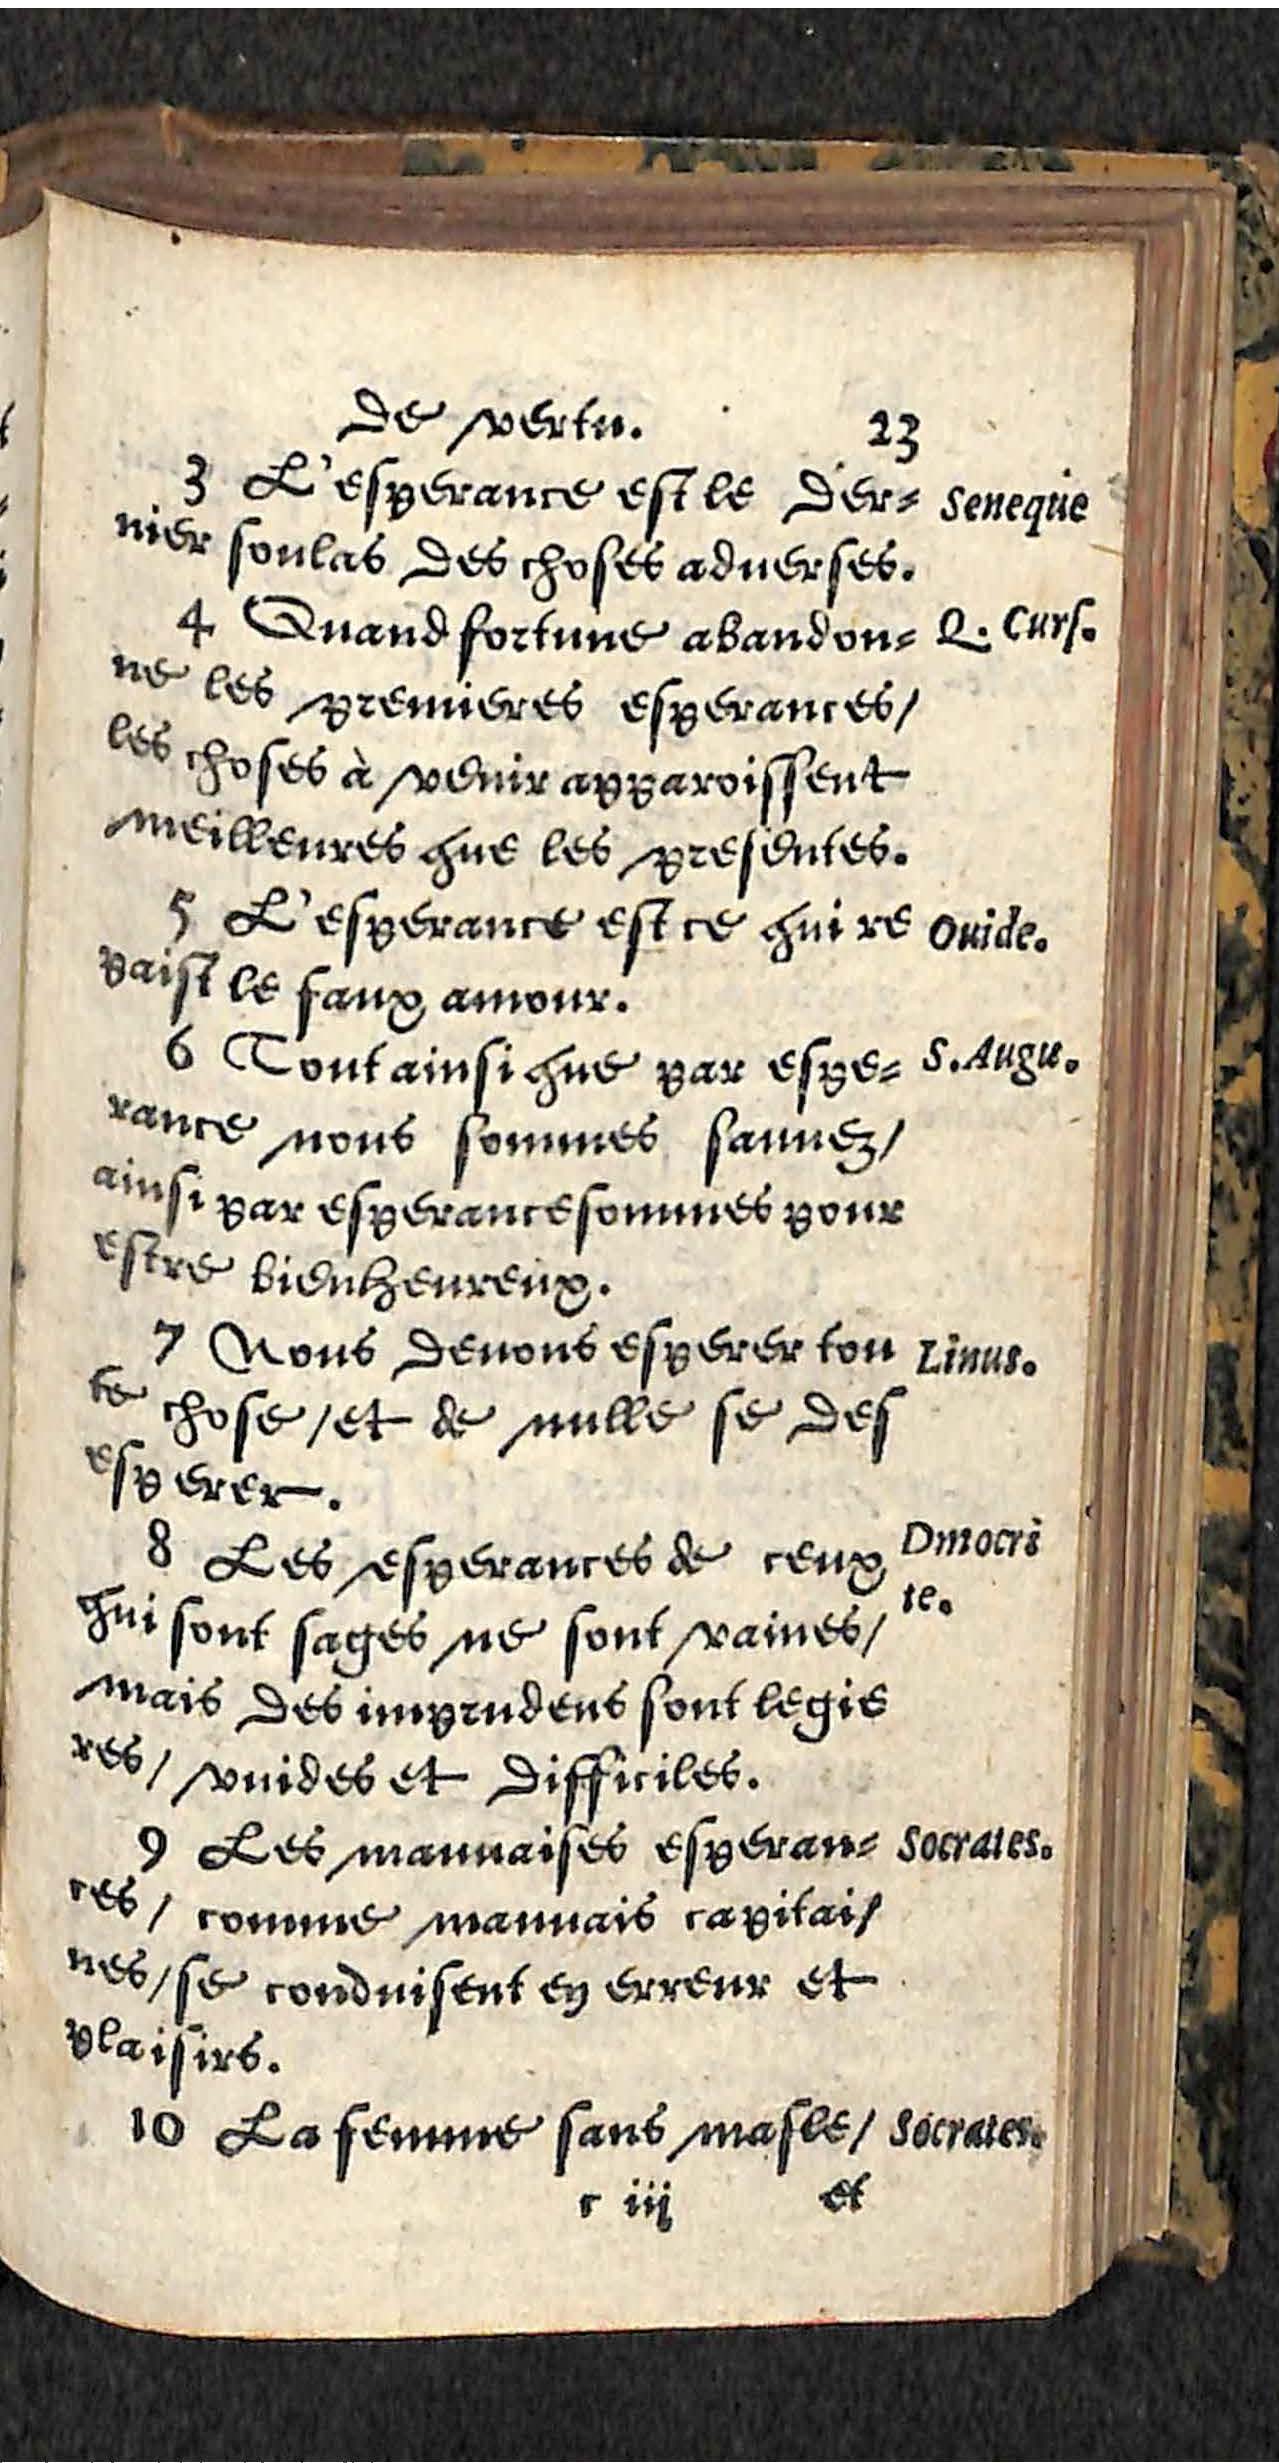 de vertu. 23
3 L'esperance est le der= Seneque
nier soulas des choses aduerses.
4 Quand fortune abandon= Q. Curs.
ne les premieres esperances/
les choses à venir apparoissent
meilleures que les presentes.
5 L'esperance est ce qui re Ouide.
paist le faux amour.
6 Tout ainsi que par espe= S. Augu.
rance nous sommes sauuez/
ainsi par esperance sommes pour
estre bienheureux.
7 Nous deuons esperer tou Linus.
te chose/et de nulle se des
esperer.
8 Les esperances de ceux Dmocri
qui sont sages ne sont vaines/ te.
mais des imprudens sont legie
res/ vuides et difficiles.
9 Les mauuaises esperan= Socrates.
ces/ comme mauuais capitai/
nes/se conduisent en erreur et
plaisirs.
10 La femme sans masle/ Socrates.
c iij et